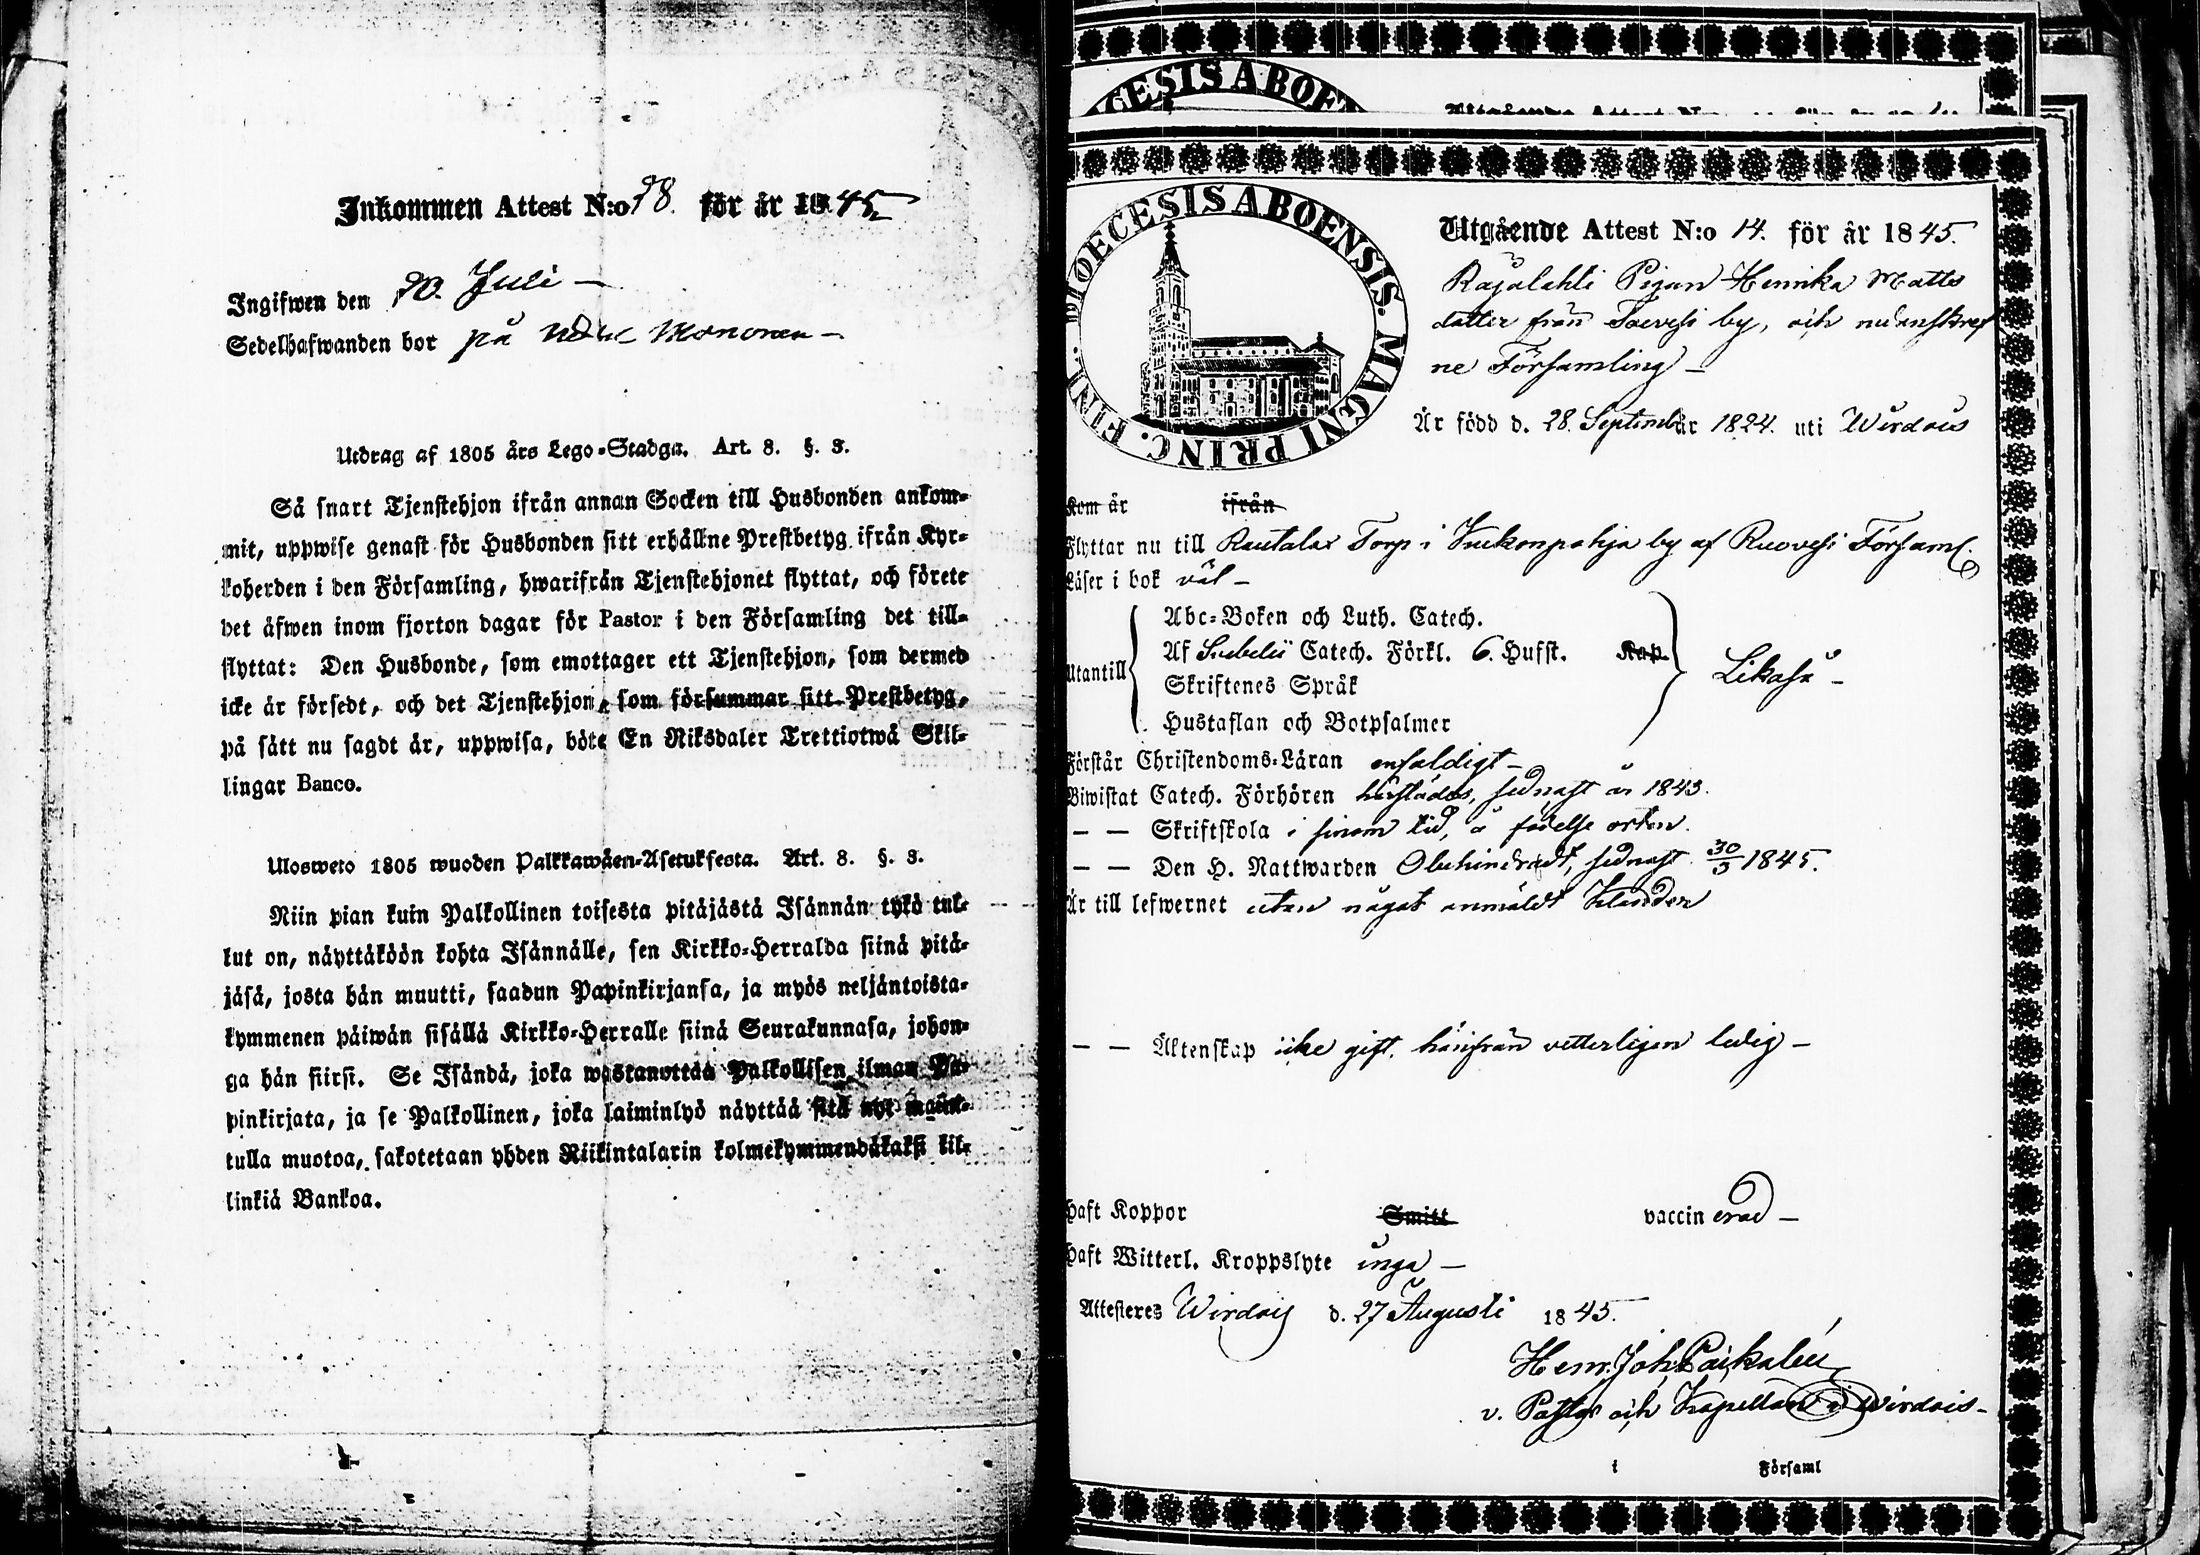 Inkommen Attest N:o 98. för år 1845.
Ingifwen den 20. Juli –
Sedelhafwanden bor på
Utdrag af 1805 års Lego-Stadga. Art. 8. §. 3.
Så snart Tjenstehjon ifrån annan Socken till Husbonden ankom-
mit, uppwise genast för Husbonden sitt erhållne Prestbetyg ifrån Kyr-
koherden i den Församling, hwarifrån Tjenstehjonet flyttat, och förete
det äfwen inom fjorton dagar för Pastor i den Församling det till-
flyttat: Den Husbonde, som emottager ett Tjenstehjon, som dermed
icke är försedt, och det Tjenstehjon, som försummar sitt Prestbetyg,
på sätt nu sagdt är, uppwisa, böte En Riksdaler Trettiotwå Skil-
lingar Banco.
Ulosweto 1805 wuoden Palkkawäen-Asetuksesta. Art. 8. §. 3.
Niin pian kuin Palkollinen toisesta pitäjästä Isännän tykö tul-
lut on, näyttäköön kohta Isännälle, sen Kirkko-Herralda siinä pitä-
jäsä, josta hän muutti, saadun Papinkirjansa, ja myös neljäntoista-
kymmenen päiwän sisällä Kirkko-Herralle siinä Seurakunnasa, johon-
ga hän siirsi. Se Isändä, joka wastanottaa Palkollisen ilman Pa-
pinkirjata, ja se Palkollinen, joka laiminlyö näyttää sitä nyt mainit-
tulla muotoa, sakotetaan yhden Riikintalarin kolmekymmendäkaksi kil-
linkiä Bankoa.
CESIS ABOE
DIOECESIS ABOENSIS. MAGNI PRINC. FINL.
Utgående Attest N:o 14. för år 1845.
Rajalahti Pigan Henrika Matts
dotter från Toevesi by, och
ne Församling –
Är född d. 28. September 1824. uti Wirdois
Kom år ifrån
Flyttar nu till Rautalax Torp i by af Ruovesi Församl.
Läser i bok väl –
Utantill
Abc-Boken och Luth. Catech.
Af Svebelii Catech. Förkl. 6. Hufst. Kap.
Skriftenes Språk
Hustaflan och Botpsalmer
Likaså –
Förstår Christendoms-Läran enfaldigt –
Biwistat Catech. Förhören härstädes, sednast år 1843.
— — Skriftskola i sinom tid, å födelse orten.
— — Den H. Nattwarden Obehindradt, sednast 30/3 1845.
Är till lefwernet utan något anmäldt klander
— — Äktenskap icke gift, härifrån vetterligen ledig –
Haft Koppor Smitt vaccinerad –
Haft Witterl. Kroppslyte inga –
Attesteres Wirdois d. 27 Augusti 1845.
Henr. Joh.
v. Pastor och Kapellan i Wirdois –
i Församl